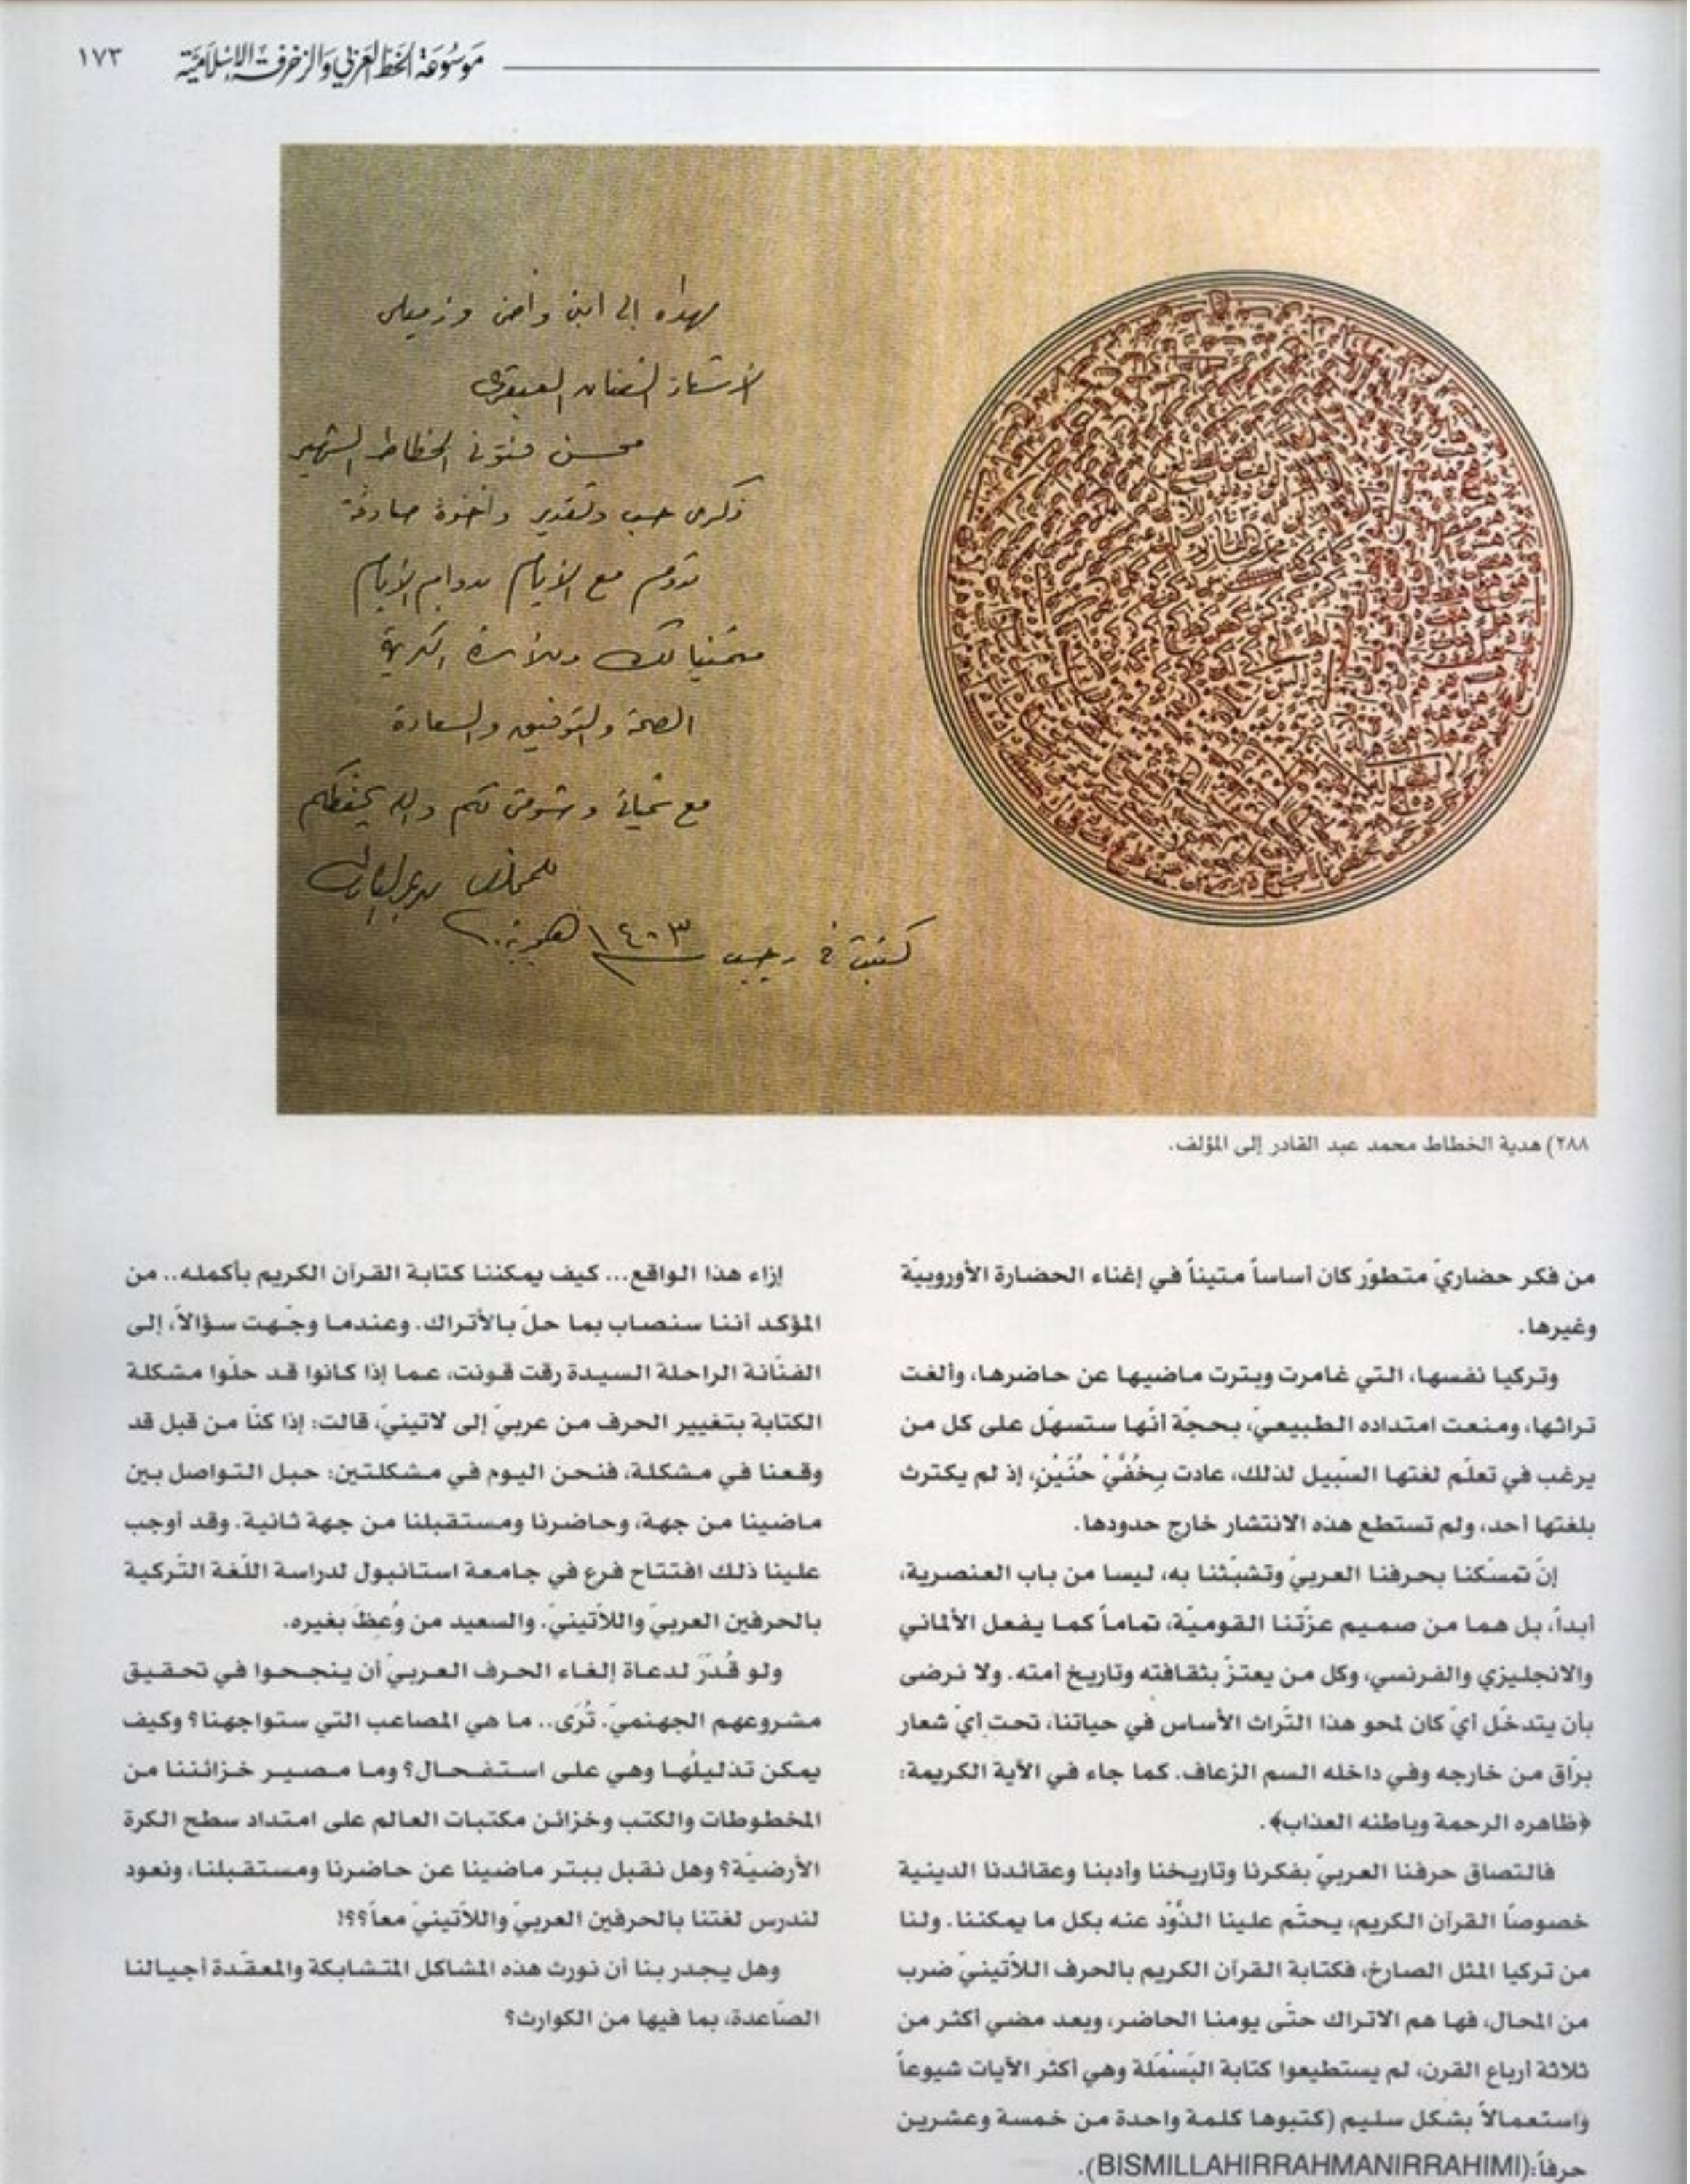 موسوعة الخط العربي والزخرفة الإسلامية ١٧٣
مهداه إلى ابني وأخي وزميلي
الأستاذ الفنان العبقري
محسن فتوني الخطاط الشهير
ذكرى حب وتقدير وأخوة صادقة
تدوم مع الأيام بدوام الأيام
متمنيا لك وللأسرة الكريمة
الصحة والتوفيق والسعادة
مع تحياتي وشوقي لكم والله يحفظكم
المخلص محمد عبد القادر
كتبت في رجب ١٤٠٣ هجرية
٢٨٨) هدية الخطاط محمد عبد القادر إلى المؤلف.
من فكر حضاريّ متطوّر كان أساساً متيناً في إغناء الحضارة الأوروبيّة
وغيرها.
وتركيا نفسها، التي غامرت وبترت ماضيها عن حاضرها، وألغت
تراثها، ومنعت امتداده الطبيعيّ، بحجّة أنّها ستسهّل على كل من
يرغب في تعلّم لغتها السّبيل لذلك، عادت بِخُفَّيْ حُنَيْنٍ، إذ لم يكترث
بلغتها أحد، ولم تستطع هذه الانتشار خارج حدودها.
إنّ تمسّكنا بحرفنا العربيّ وتشبّثنا به، ليسا من باب العنصرية،
أبداً، بل هما من صميم عزّتنا القوميّة، تماماً كما يفعل الألماني
والانجليزي والفرنسي، وكل من يعتزّ بثقافته وتاريخ أمته. ولا نرضى
بأن يتدخّل أيّ كان لمحو هذا التّراث الأساس في حياتنا، تحت أيّ شعار
برّاق من خارجه وفي داخله السم الزعاف. كما جاء في الآية الكريمة:
﴿ظاهره الرحمة وباطنه العذاب﴾.
فالتصاق حرفنا العربيّ بفكرنا وتاريخنا وأدبنا وعقائدنا الدينية
خصوصاً القرآن الكريم، يحتّم علينا الذَّوْد عنه بكل ما يمكننا. ولنا
من تركيا المثل الصارخ، فكتابة القرآن الكريم بالحرف اللاّتينيّ ضرب
من المحال، فها هم الاتراك حتّى يومنا الحاضر، وبعد مضي أكثر من
ثلاثة أرباع القرن، لم يستطيعوا كتابة البَسْمَلة وهي أكثر الآيات شيوعاً
واستعمالاً بشكل سليم (كتبوها كلمة واحدة من خمسة وعشرين
حرفاً:(BISMILLAHIRRAHMANIRRAHIMI).
إزاء هذا الواقع... كيف يمكننا كتابة القرآن الكريم بأكمله.. من
المؤكد أننا سنصاب بما حلّ بالأتراك. وعندما وجّهت سؤالاً، إلى
الفنّانة الراحلة السيدة رقت قونت، عما إذا كانوا قد حلّوا مشكلة
الكتابة بتغيير الحرف من عربيّ إلى لاتينيّ، قالت: إذا كنّا من قبل قد
وقعنا في مشكلة، فنحن اليوم في مشكلتين: حبل التواصل بين
ماضينا من جهة، وحاضرنا ومستقبلنا من جهة ثانية. وقد أوجب
علينا ذلك افتتاح فرع في جامعة استانبول لدراسة اللّغة التّركية
بالحرفين العربيّ واللاّتينيّ. والسعيد من وُعظَ بغيره.
ولو قُدّرَ لدعاة إلغاء الحرف العربيّ أن ينجحوا في تحقيق
مشروعهم الجهنميّ. تُرَى.. ما هي المصاعب التي ستواجهنا؟ وكيف
يمكن تذليلُها وهي على استفحال؟ وما مصير خزائننا من
المخطوطات والكتب وخزائن مكتبات العالم على امتداد سطح الكرة
الأرضيّة؟ وهل نقبل ببتر ماضينا عن حاضرنا ومستقبلنا، ونعود
لندرس لغتنا بالحرفين العربيّ واللاّتينيّ معاً؟؟!
وهل يجدر بنا أن نورث هذه المشاكل المتشابكة والمعقّدة أجيالنا
الصّاعدة، بما فيها من الكوارث؟